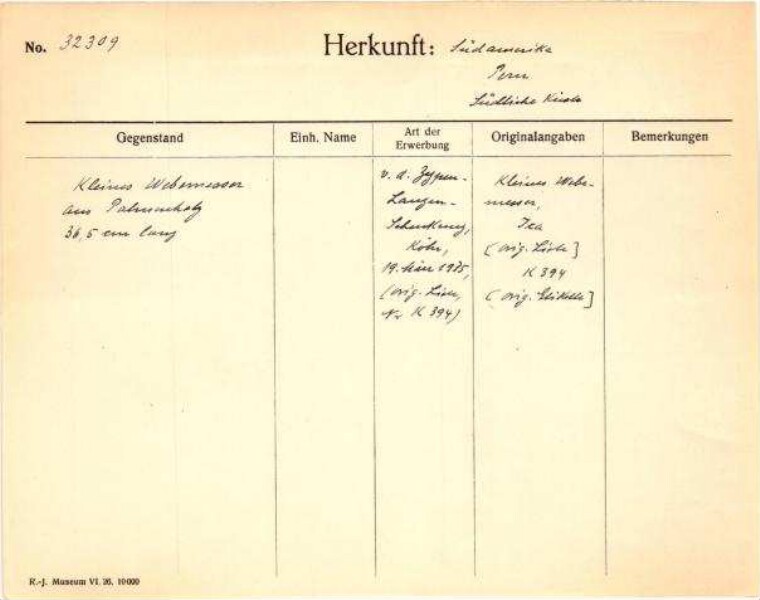 No. 32309
Herkunft: Südamerika
Peru
Südliche Küste
Gegenstand
Einh. Name
Art der Erwerbung
Originalangaben
Bemerkungen
Kleines Webemesser
aus Palmenholz
36,5 cm lang
v. d. Zypen-
Langen-
Schenkung,
Köln,
19. März 1925,
(orig. Liste,
Nr K 394)
Kleines Webe-
messer,
Ica
(orig. Liste]
K 394
(orig. Etikette]
R.-J. Museum VI. 26. 10000